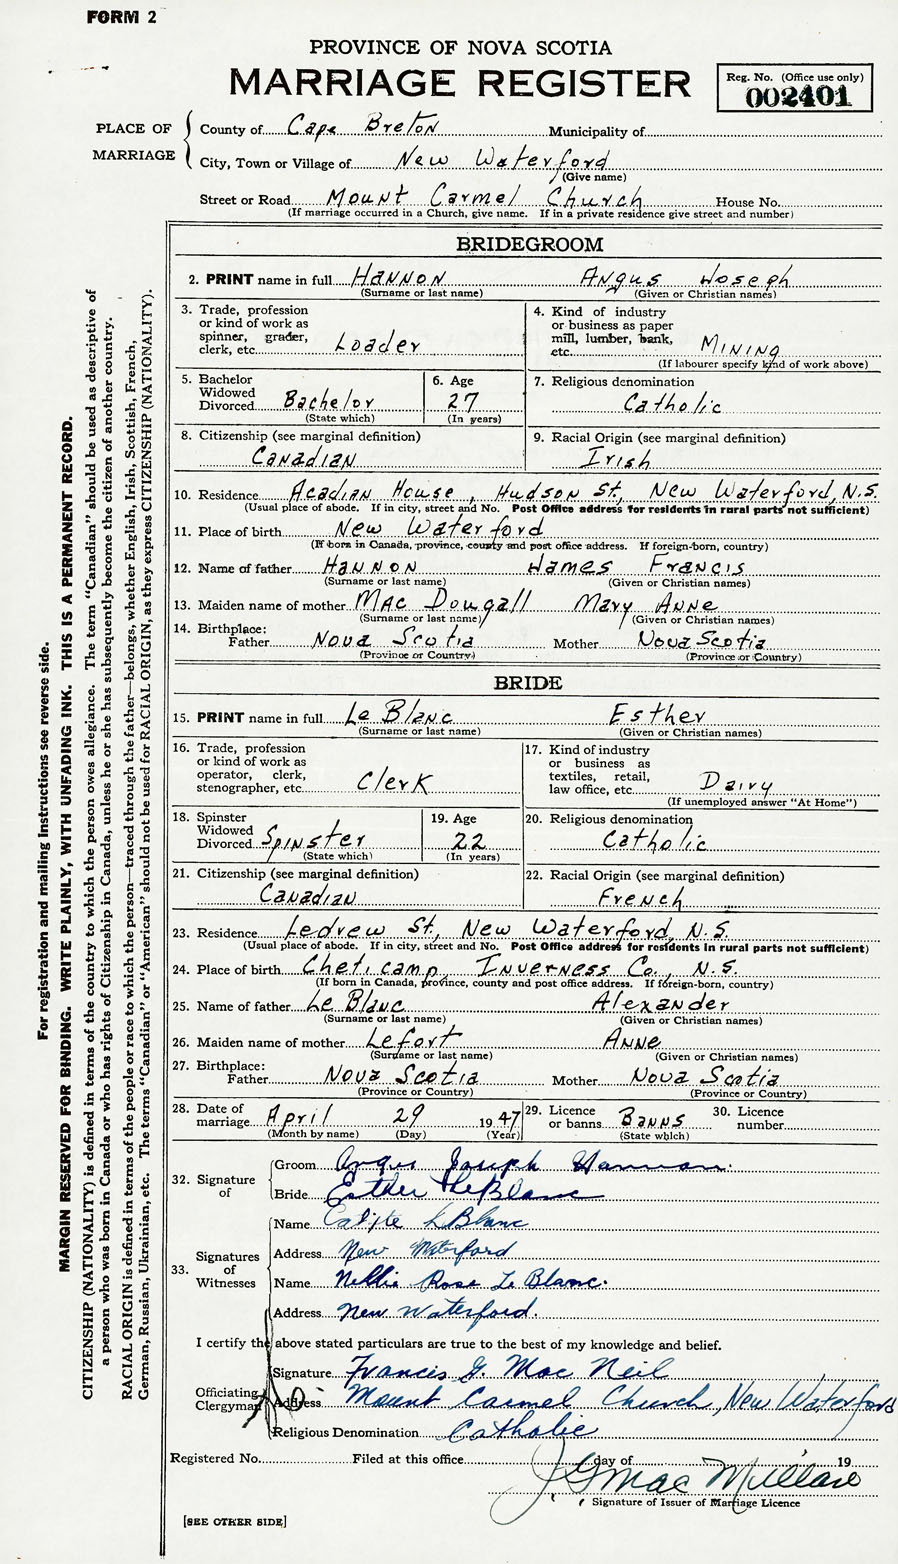 FORM 2
PROVINCE OF NOVA SCOTIA
MARRIAGE REGISTER
Reg. No. (Office use only)
002401
PLACE OF MARRIAGE
County of Cape Breton Municipality of
City, Town or Village of New Waterford
(Give name)
Street or Road Mount Carmel Church House No.
(If marriage occurred in a Church, give name. If in a private residence give street and number)
BRIDEGROOM
2. PRINT name in full Hannon Angus Joseph
(Surname or last name) (Given or Christian names)
3. Trade, profession or kind of work as spinner, grader, clerk, etc. Loader
4. Kind of industry or business as paper mill, lumber, bank, etc. Mining
(If labourer specify kind of work above)
5. Bachelor Widowed Divorced Bachelor
(State which)
6. Age 27
(In years)
7. Religious denomination
Catholic
8. Citizenship (see marginal definition)
Canadian
9. Racial Origin (see marginal definition)
Irish
10. Residence Acadian House, Hudson St., New Waterford, N.S.
(Usual place of abode. If in city, street and No. Post Office address for residents in rural parts not sufficient)
11. Place of birth New Waterford
(If born in Canada, province, county and post office address. If foreign-born, country)
12. Name of father Hannon James Francis
(Surname or last name) (Given or Christian names)
13. Maiden name of mother Mac Dougall Mary Anne
(Surname or last name) (Given or Christian names)
14. Birthplace:
Father Nova Scotia Mother Nova Scotia
(Province or Country) (Province or Country)
BRIDE
15. PRINT name in full Le Blanc Esther
(Surname or last name) (Given or Christian names)
16. Trade, profession or kind of work as operator, clerk, stenographer, etc. Clerk
17. Kind of industry or business as textiles, retail, law office, etc. Dairy
(If unemployed answer "At Home")
18. Spinster Widowed Divorced Spinster
(State which)
19. Age 22
(In years)
20. Religious denomination
Catholic
21. Citizenship (see marginal definition)
Canadian
22. Racial Origin (see marginal definition)
French
23. Residence Ledrew St., New Waterford, N.S.
(Usual place of abode. If in city, street and No. Post Office address for residents in rural parts not sufficient)
24. Place of birth Cheticamp, Inverness Co., N.S.
(If born in Canada, province, county and post office address. If foreign-born, country)
25. Name of father Le Blanc Alexander
(Surname or last name) (Given or Christian names)
26. Maiden name of mother Lefort Anne
(Surname or last name) (Given or Christian names)
27. Birthplace:
Father Nova Scotia Mother Nova Scotia
(Province or Country) (Province or Country)
28. Date of marriage April 29 1947
(Month by name) (Day) (Year)
29. Licence or banns Banns
(State which)
30. Licence number
32. Signature of
Groom Angus Joseph Hannon.
Bride Esther LeBlanc
33. Signatures of Witnesses
Name LeBlanc
Address New Waterford
Name Nellie Rose Le Blanc.
Address New Waterford.
I certify the above stated particulars are true to the best of my knowledge and belief.
Officiating Clergyman
Signature Francis G. Mac Neil
Address Mount Carmel Church, New Waterford
Religious Denomination Catholic
Registered No. Filed at this office day of 19
J G MacMullare
Signature of Issuer of Marriage Licence
[SEE OTHER SIDE]
For registration and mailing instructions see reverse side.
MARGIN RESERVED FOR BINDING. WRITE PLAINLY, WITH UNFADING INK. THIS IS A PERMANENT RECORD.
CITIZENSHIP (NATIONALITY) is defined in terms of the country to which the person owes allegiance. The term "Canadian" should be used as descriptive of
a person who was born in Canada or who has rights of Citizenship in Canada, unless he or she has subsequently become the citizen of another country.
RACIAL ORIGIN is defined in terms of the people or race to which the person—traced through the father—belongs, whether English, Irish, Scottish, French,
German, Russian, Ukrainian, etc. The terms "Canadian" or "American" should not be used for RACIAL ORIGIN, as they express CITIZENSHIP (NATIONALITY).